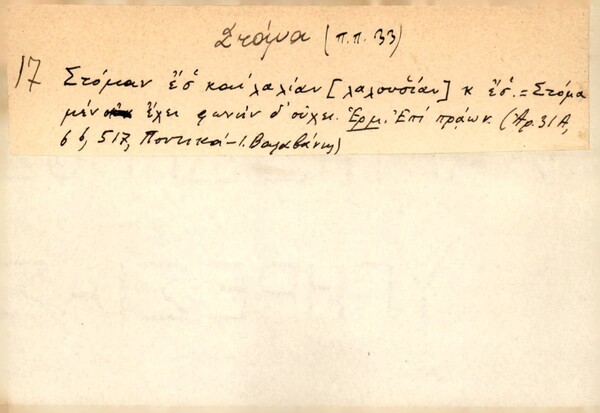 Στόμα (π.π. 33)
17 Στόμαν ἔσ̌ καὶ λαλίαν [λαλουσ̌ίαν] κ̓ ἔσ̌. = Στόμα
μέν ἔχει φωνήν δ' οὔχει. Ἑρμ. Ἐπί πράων. (Ἀρ. 31Α,
σ. 517, Ποντικά - Ι. Βαλαβάνης)